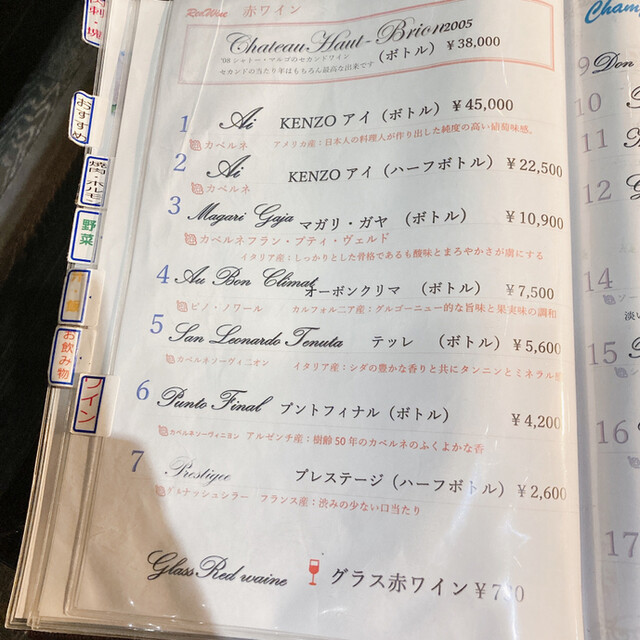 Red Wine 赤ワイン
Chateau-Haut-Brion2005
'08 シャトー・マルゴのセカンドワイン
(ボトル) ¥38,000
セカンドの当たり年はもちろん最高な出来です
1 Ai KENZO アイ (ボトル) ¥45,000
カベルネ アメリカ産:日本人の料理人が作り出した純度の高い葡萄味感。
2 Ai KENZO アイ (ハーフボトル) ¥22,500
カベルネ
3 Magari Gaja マガリ・ガヤ (ボトル) ¥10,900
カベルネフラン・プティ・ヴェルド
イタリア産:しっかりとした骨格であるも酸味とまろやかさが虜にする
4 Au Bon Climat オーボンクリマ (ボトル) ¥7,500
ピノ・ノワール カルフォルニア産:ブルゴーニュー的な旨味と果実味の調和
5 San Leonardo Tenuta テッレ (ボトル) ¥5,600
カベルネソーヴィニオン イタリア産:シダの豊かな香りと共にタンニンとミネラル
6 Punto Final プントフィナル (ボトル) ¥4,200
カベルネソーヴィニヨン アルゼンチ産:樹齢50年のカベルネのふくよかな香
7 Prestigee プレステージ (ハーフボトル) ¥2,600
グルナッシュシラー フランス産:渋みの少ない口当たり
Glass Red waine グラス赤ワイン ¥7
おすすめ
焼肉・ホルモン
野菜
お飲み物
ワイン
Champ
9 Don
10
11
12
14
15
16
17